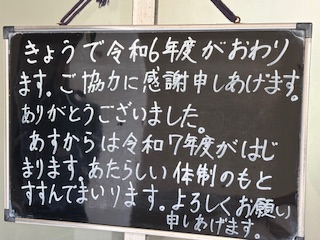 きょうで令和6年度がおわり
ます。ご協力に感謝申しあげます。
ありがとうございました。
あすからは令和7年度がはじ
まります。あたらしい体制のもと
すすんでまいります。よろしくお願い
申しあげます。